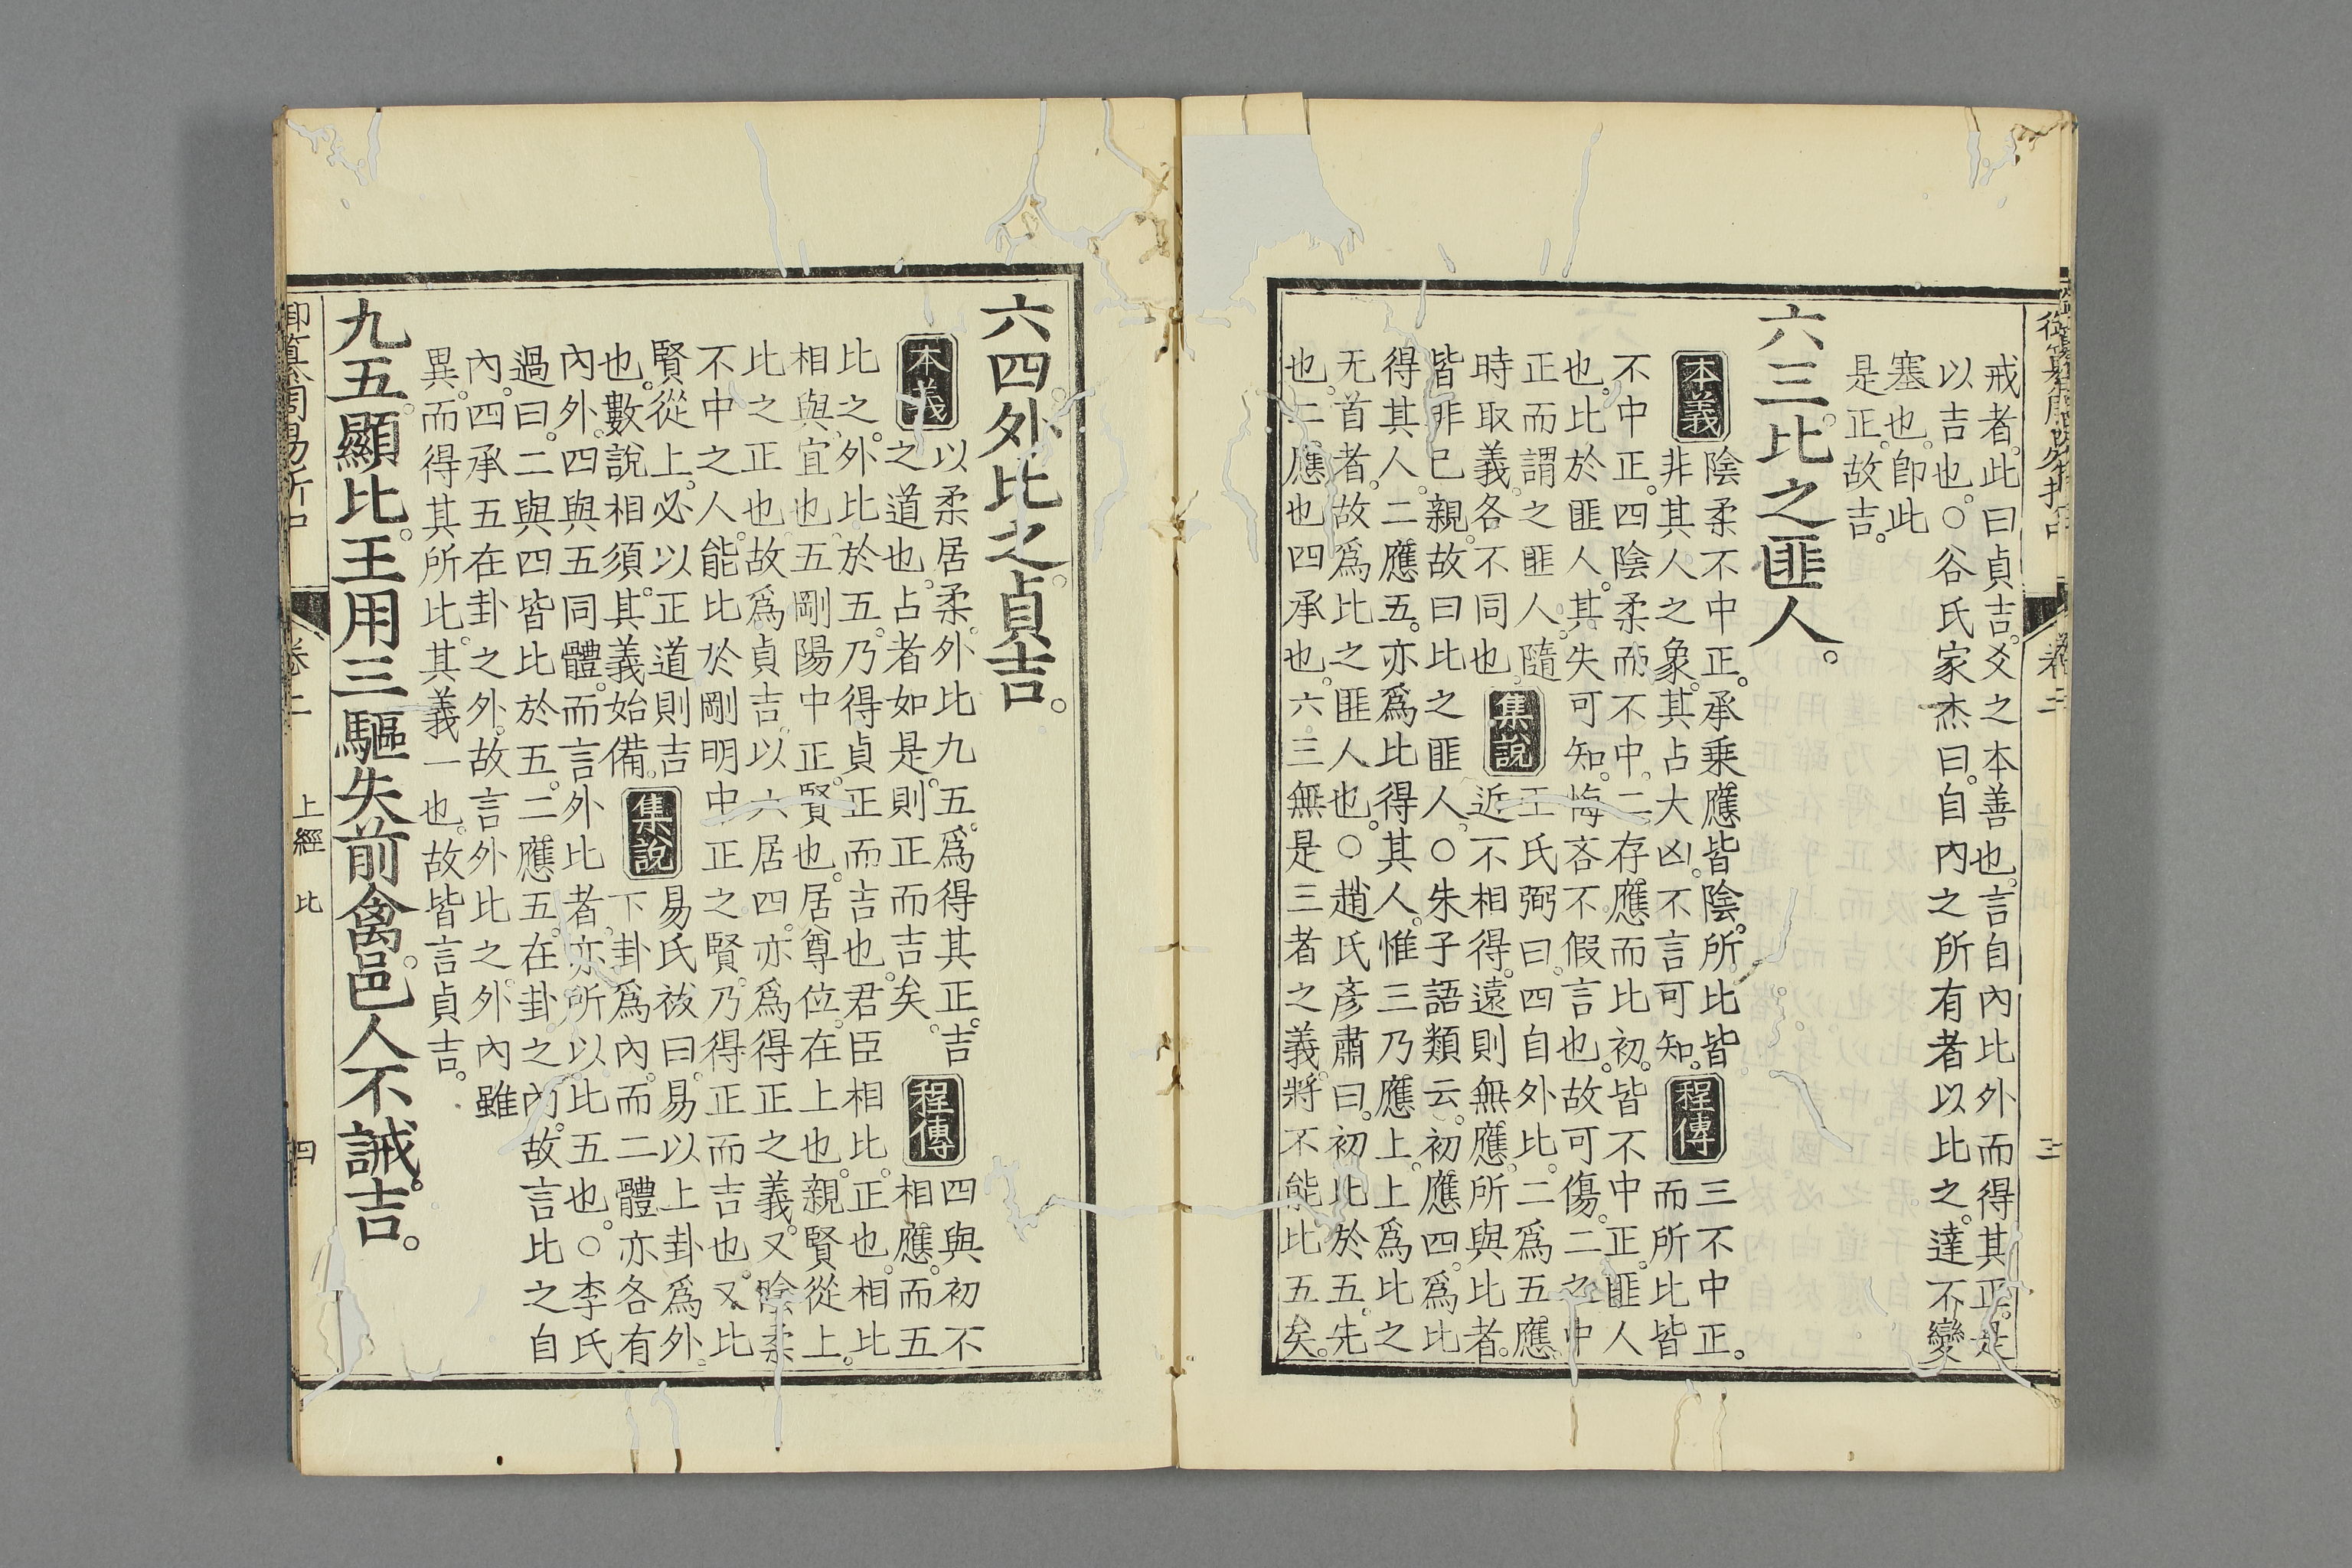 御纂周易折中 卷二 三
戒者。此曰貞吉。爻之本善也。言自內比外而得其正。是
以吉也。○谷氏家杰曰。自內之所有者以比之。達不變
塞也。卽此
是正。故吉。
六三。比之匪人。
本義 陰柔不中正。承乘應皆陰。所比皆
非其人之象。其占大凶。不言可知。
程傳 三不中正。
而所比皆
不中正。四陰柔而不中。二存應而比初。皆不中正。匪人
也。比於匪人。其失可知。悔吝不假言也。故可傷。二之中
正而謂之匪人。隨
時取義。各不同也。
集說 王氏弼曰。四自外比。二爲五應。
近不相得。遠則無應。所與比者。
皆非己親。故曰比之匪人。○朱子語類云。初應四。爲比
得其人。二應五。亦爲比得其人。惟三乃應上。上爲比之
无首者。故爲比之匪人也。○趙氏彥肅曰。初比於五。先
也。二應也。四承也。六三無是三者之義。將不能比五矣。
六四。外比之。貞吉。
本義 以柔居柔。外比九五。爲得其正。吉
之道也。占者如是。則正而吉矣。
程傳 四與初不
相應。而五
比之。外比於五。乃得貞正而吉也。君臣相比。正也。相比
相與。宜也。五剛陽中正。賢也。居尊位。在上也。親賢從上。
比之正也。故爲貞吉。以六居四。亦爲得正之義。又陰柔
不中之人。能比於剛明中正之賢。乃得正而吉也。又比
賢從上。必以正道則吉
也。數說相須。其義始備。
集說 易氏祓曰。易以上卦爲外。
下卦爲內。而二體亦各有
內外。四與五同體。而言外比者。亦所以比五也。○李氏
過曰。二與四皆比於五。二應五。在卦之內。故言比之自
內。四承五。在卦之外。故言外比之。外內雖
異。而得其所比。其義一也。故皆言貞吉。
九五。顯比。王用三驅失前禽。邑人不誡。吉。
御纂周易折中 卷二 上經 比 四